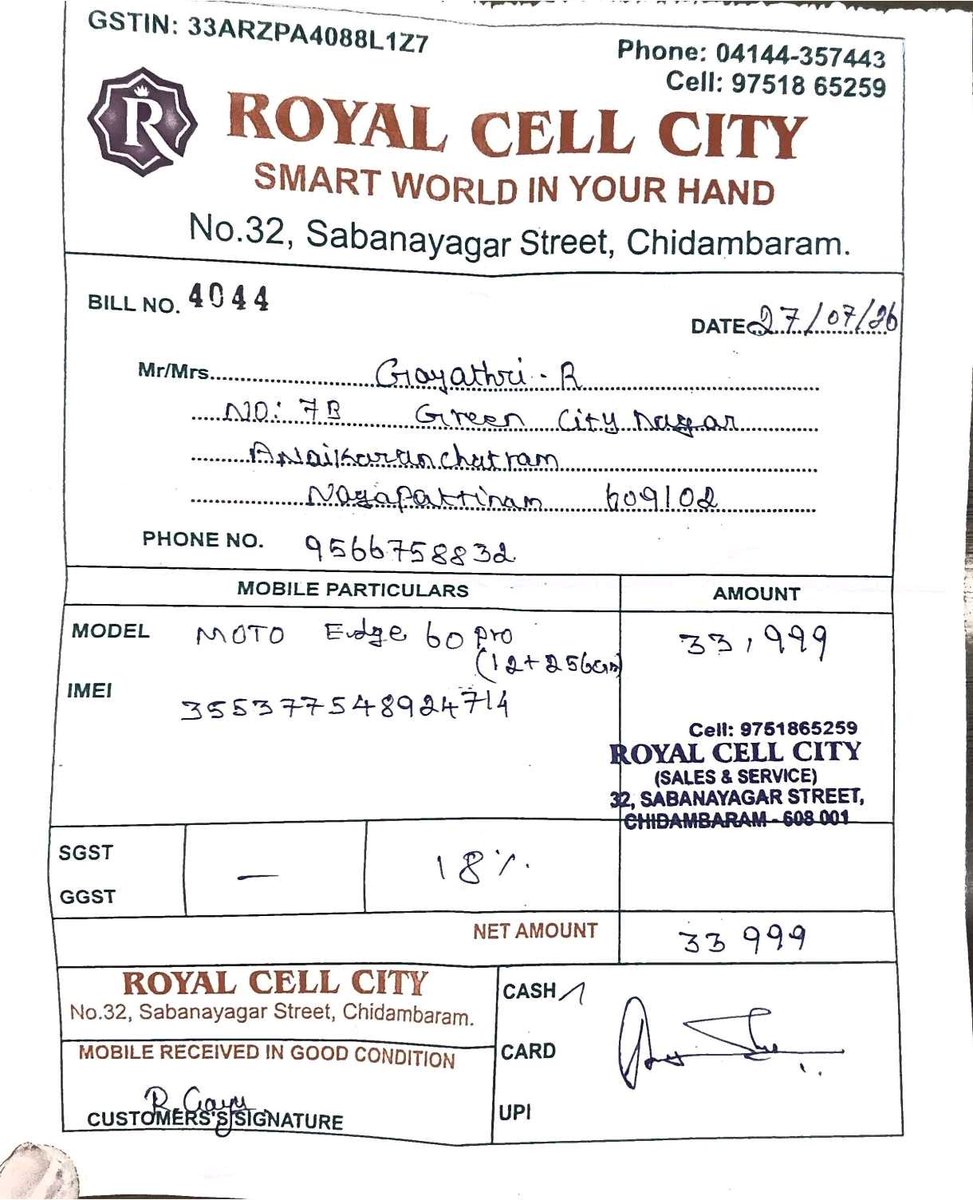 GSTIN: 33ARZPA4088L1Z7
Phone: 04144-357443
Cell: 97518 65259
R
ROYAL CELL CITY
SMART WORLD IN YOUR HAND
No.32, Sabanayagar Street, Chidambaram.
BILL NO. 4044
DATE 27/07/26
Mr/Mrs Gayathri - R
NO: 7B Green City Nagar
Anaikaranchatram
Nagapattinam 609102
PHONE NO. 9566758832
MOBILE PARTICULARS AMOUNT
MODEL MOTO Edge 60 pro 33,999
(12+256GB)
IMEI 355377548924714
Cell: 9751865259
ROYAL CELL CITY
(SALES & SERVICE)
32, SABANAYAGAR STREET,
CHIDAMBARAM - 608 001
SGST
— 18%
GGST
NET AMOUNT 33 999
ROYAL CELL CITY
No.32, Sabanayagar Street, Chidambaram.
CASH
MOBILE RECEIVED IN GOOD CONDITION
CARD
R Gayu
CUSTOMERS'S SIGNATURE
UPI